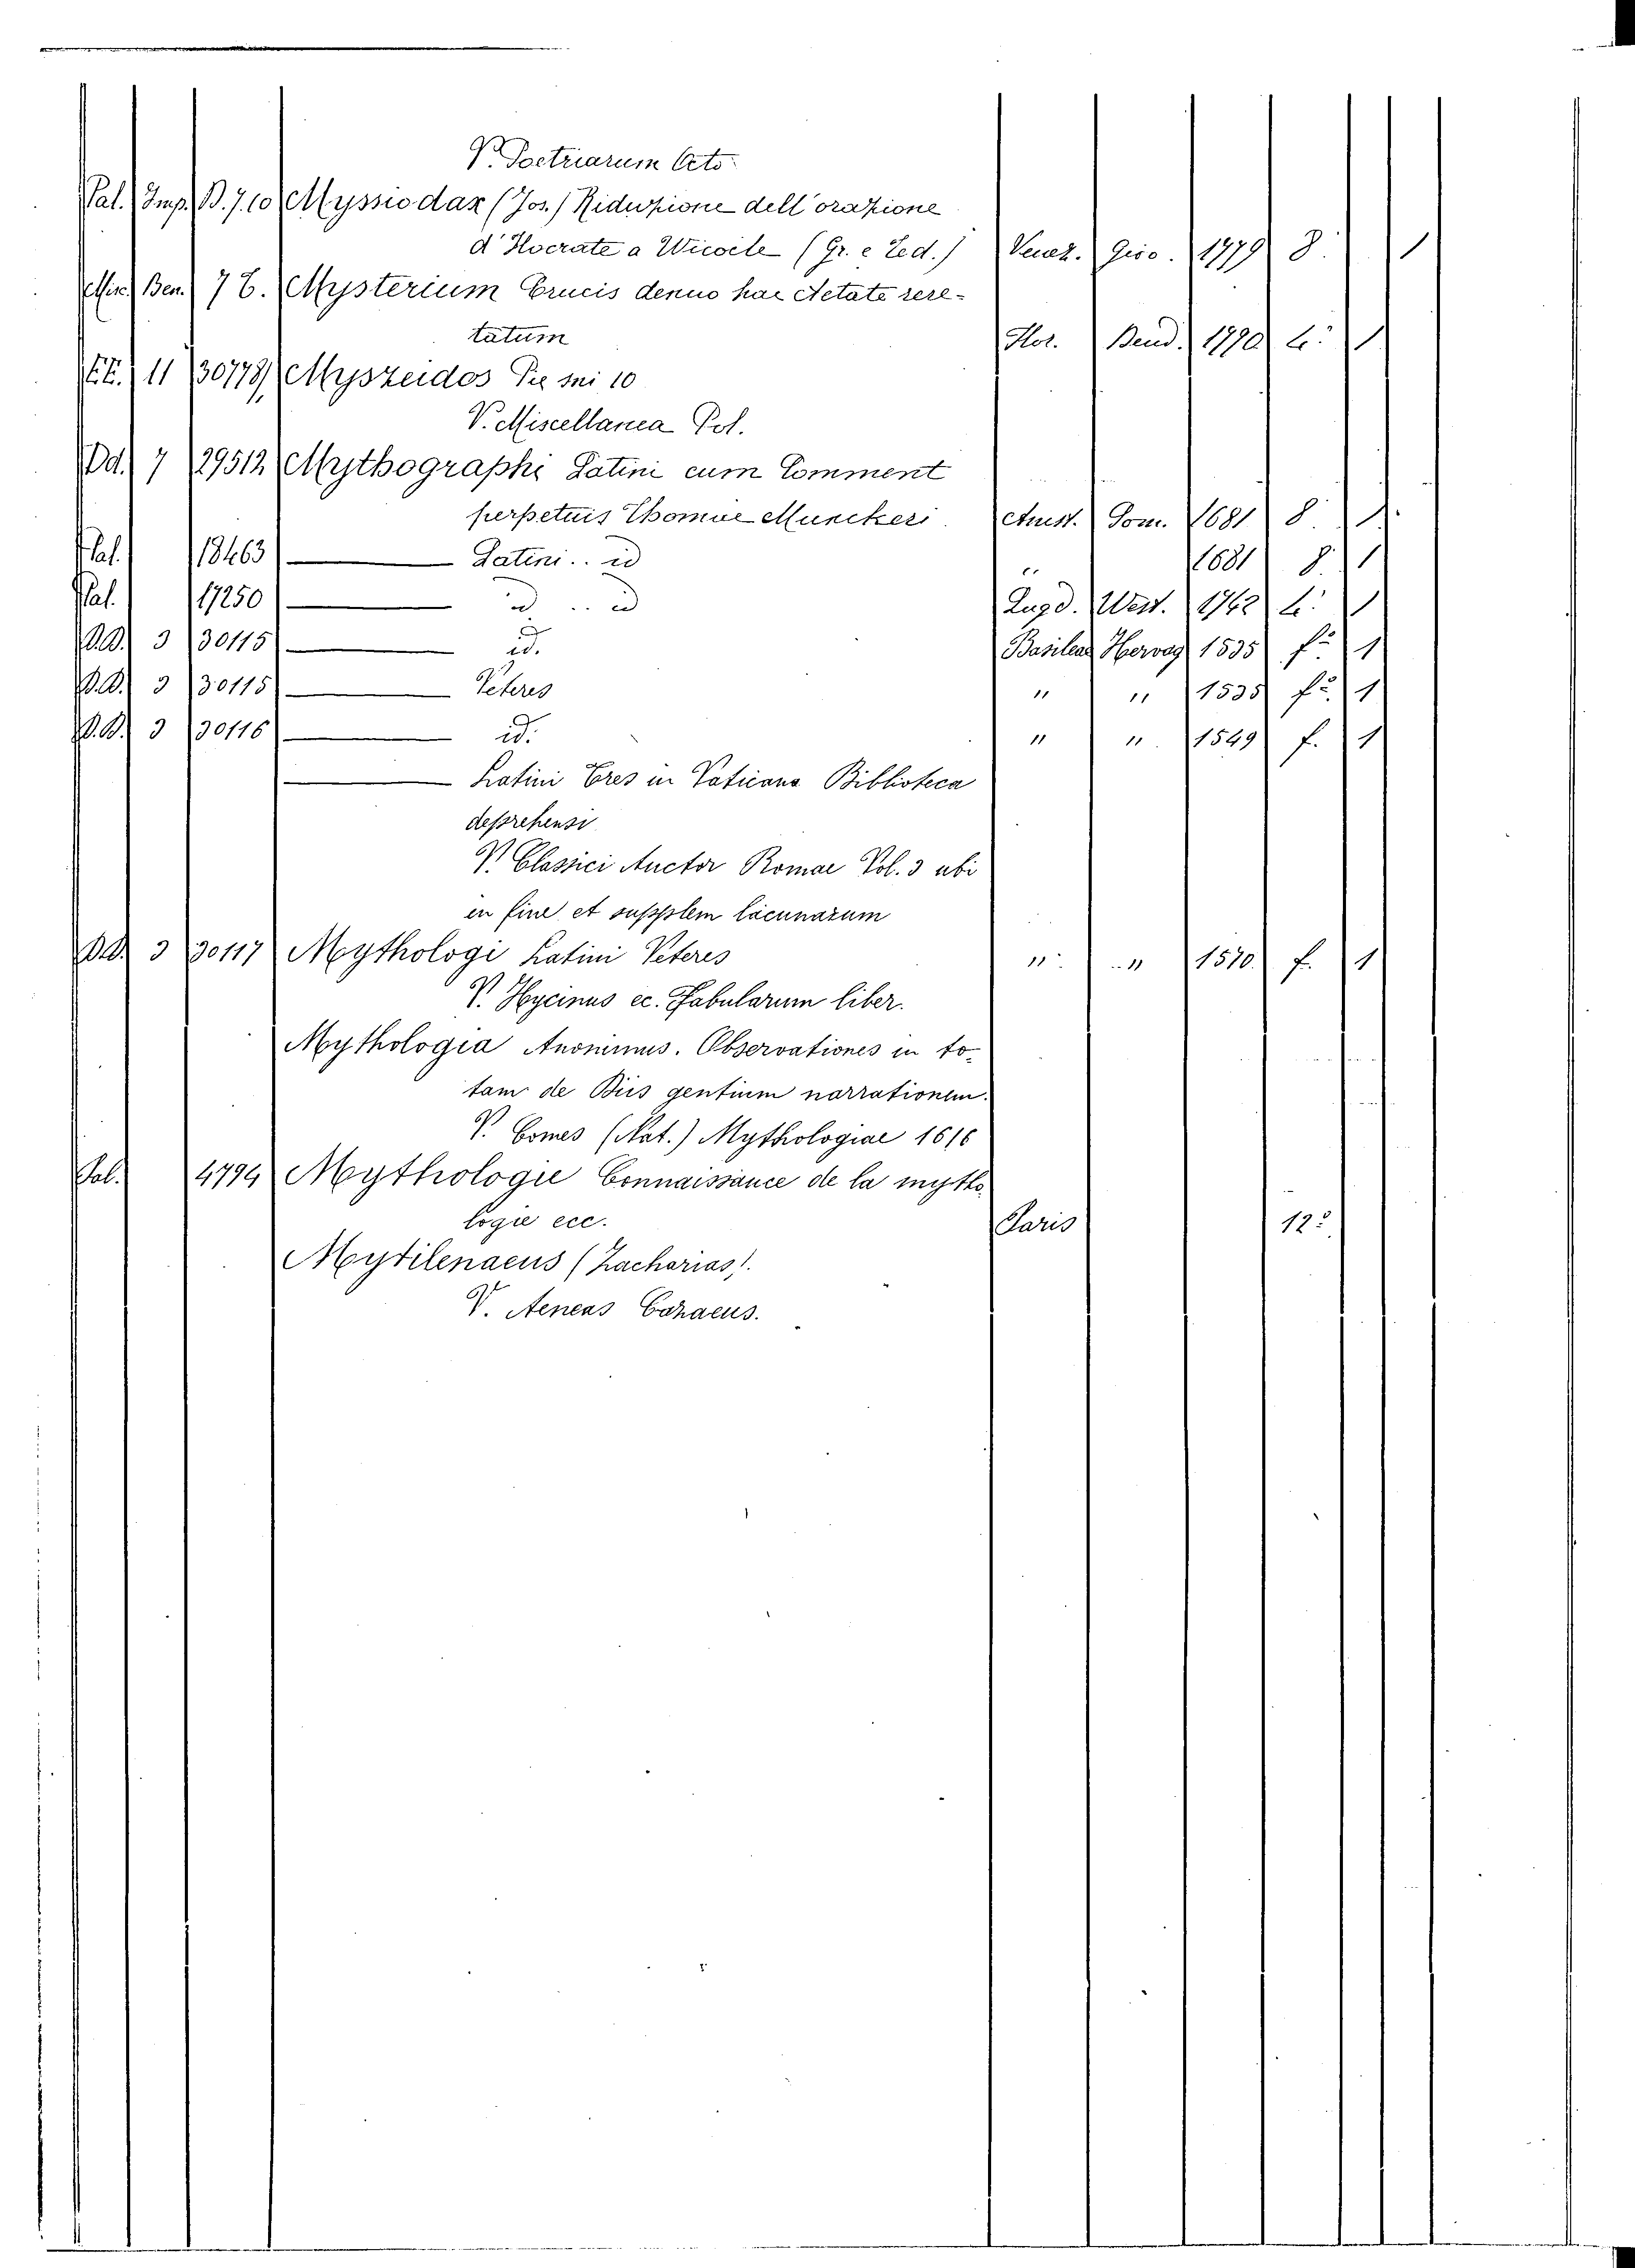 V. Poetriarum Octo
Pal. Imp. B. 7. 10 Myssiodax (Jos.) Riduzione dell'orazione
d'Isocrate a Nicocle (Gr. e Ted.) Venez. 1779 8. 1
Misc. Ben. 7 6. Mysterium Crucis denuo hac Aetate rese-
tatum Flor. Bend. 1790 4: 1
11 30778 Myszeidos
V. Miscellanea Pol.
Dd. 7 29512 Mythographi Latini cum Comment
perpetuis Thomae Munckeri Amst. Som. 1681 8 1.
Pal. 18463 Latini .. id " 1681 8. 1
Pal. 17250 id .. id Lugd. West. 1742 4: 1
D.D. 3 30115 id. Basileae Hervag 1535 f: 1
D.D. 3 30115 Veteres " " 1535 f: 1
D.D. 3 30116 id. " " 1549 f. 1
Latini Tres in Vaticana Biblioteca
deprehensi
V. Classici Auctor Romae Vol. 3 ubi
in fine et supplem lacunarum
D.D. 3 30117 Mythologi Latini Veteres " " 1570. f. 1
V. Hycinus ec. Fabularum liber.
Mythologia Anonimus. Observationes in to-
tam de Diis gentium narrationem.
V. Comes (Nat.) Mythologiae 1616
Pal. 4794 Mythologie Connaissance de la mytho
logie ecc. Paris 12:
Mytilenaeus (Zacharias).
V. Aeneas Gazaeus.